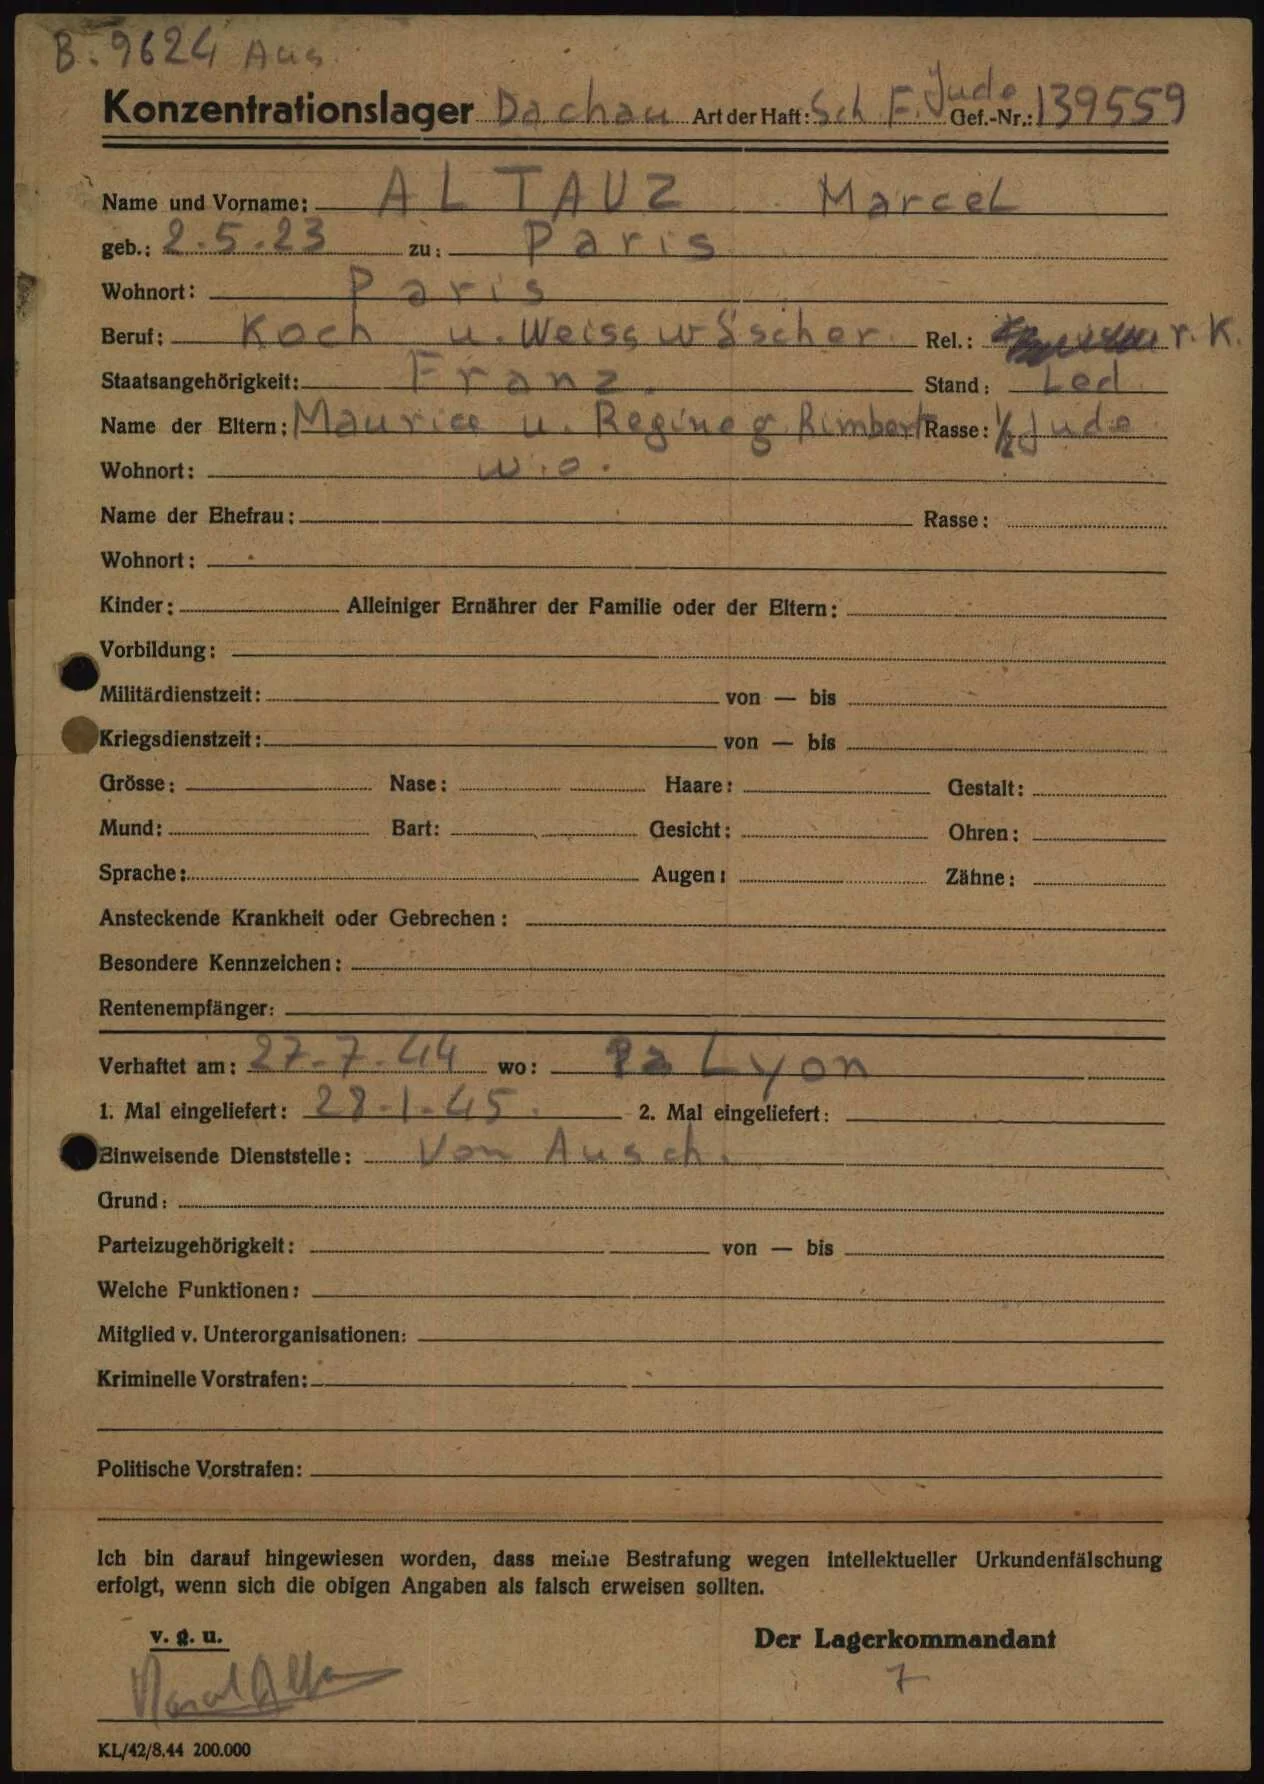 B. 9624 Aus.
Konzentrationslager Dachau Art der Haft: Sch. F. Jude Gef.-Nr.: 139559
Name und Vorname: ALTAUZ Marcel
geb.: 2.5.23 zu: Paris
Wohnort: Paris
Beruf: Koch u. Weisswäscher. Rel.: r. K.
Staatsangehörigkeit: Franz. Stand: Led.
Name der Eltern: Maurice u. Regine g. Rimbert Rasse: ½ Jude
Wohnort: w.o.
Name der Ehefrau: Rasse:
Wohnort:
Kinder: Alleiniger Ernährer der Familie oder der Eltern:
Vorbildung:
Militärdienstzeit: von — bis
Kriegsdienstzeit: von — bis
Grösse: Nase: Haare: Gestalt:
Mund: Bart: Gesicht: Ohren:
Sprache: Augen: Zähne:
Ansteckende Krankheit oder Gebrechen:
Besondere Kennzeichen:
Rentenempfänger:
Verhaftet am: 27-7-44 wo: Lyon
1. Mal eingeliefert: 28-1-45. 2. Mal eingeliefert:
Einweisende Dienststelle: Von Ausch.
Grund:
Parteizugehörigkeit: von — bis
Welche Funktionen:
Mitglied v. Unterorganisationen:
Kriminelle Vorstrafen:
Politische Vorstrafen:
Ich bin darauf hingewiesen worden, dass meine Bestrafung wegen intellektueller Urkundenfälschung
erfolgt, wenn sich die obigen Angaben als falsch erweisen sollten.
v. g. u. Der Lagerkommandant
7
KL/42/8.44 200.000